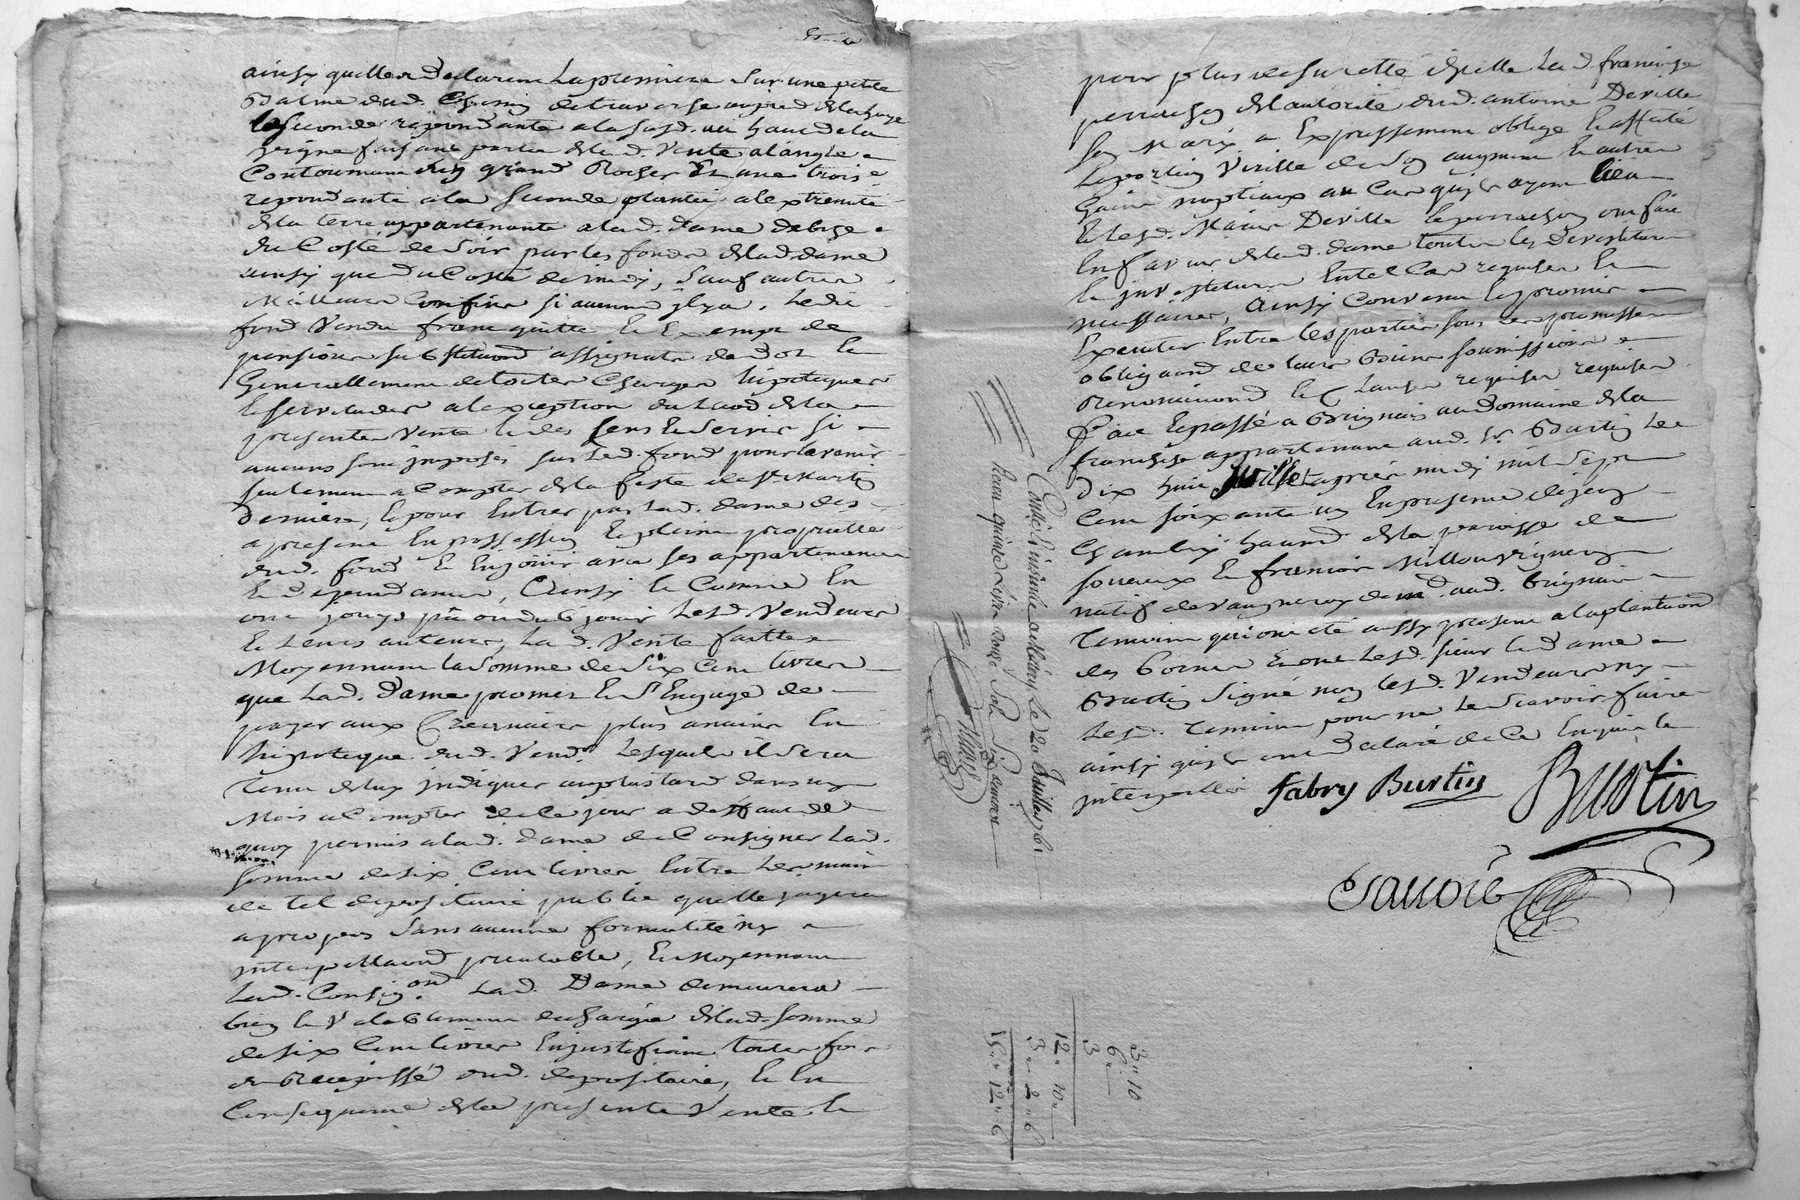 ainsy quelles declarent la premiere sur une petite
Balme dud. Chemin de traverse aupred de la haye
la seconde repondante a la susd. au haut de la
vigne faisant partie de lad. Vente a langle
Contournant un grand Rocher Et une trois.e
repondante a la seconde plantée a lextremité
de la terre appartenante a lad. dame de bize
du Costé de soir par les fonds de lad. dame
ainsy que du Costé de midy, sauf autres
Meilleurs Confins si aucuns jl y a. Ledit
fond Vendu franc quitte Et Exempt de
pensions substitutions assignats de dot Et
Generallement de toutes Charges hipoteques
Et servitudes a lexception du Laod de la
presente Vente Et des sens Et servis si
aucuns sont jmposés sur led. fond pour lavenir
seulement a Compter de la feste de st. Martin
derniere, Et pour Entrer par lad. dame des
a present En possession Et pleine proprieté
dud. fond Et En jouir avec ses appartenances
Et dependances, Ainsy Et Comme En
ont jouys pû ou dub jouir Lesd. Vendeurs
Et Leurs auteurs, Lad. Vente faitte
Moyennant la somme de Six Cent livres
que Lad. dame promet Et s'Engage de
payer aux Creanciers plus anciens En
hipoteque dud. Vend.r Lesquels il sera
tenu de luy jndiquer au plus tard dans un
Mois a Compter de Ce jour a deffaut de
quoy permis a lad. dame de Consigner Lad.
somme de six Cent livres Entre Les mains
de tel depositaire public quelle jugera
apropos sans aucune formalité ny
jnterpellaond prealable, Et Moyennant
Lad. Consig.ond Lad. Dame demeurera
bien Et Valablement dechargée de lad. somme
de six Cent livres En justifiant toutes fois
du Recepissé dud. depositaire, Et En
Consequence de la presente Vente Et
pour plus de sureté dicelle Lad. françoise
perrachon de lautorité dud. antoine Deville
son Mary a Expressement obligé Et affecté
la portion Virille de son augment Et autres
Gains nuptiaux au Cas quils ayent lieu
Et lesd. Mariés Deville Et perrachon ont fait
En faveur de lad. dame toutes les Devestitures
Et jnvestitures En tel Cas requises Et
necessaires, Ainsy Convenu Et promis
Executer Entre les parties sous Les promesses
obligaond de leurs Biens soumissions
Renonciaond Et Clauses requises requises
fait Et passé a Brignais au Domaine de la
françoise appartenant aud. sr. Burtin Le
dix huit Juillet apres midy mil sept
Cent soixante un En presence de jean
Chambry habitand de la paroisse de
soucieux Et françois Millon vigneron
natif de Vaugneray dem.t aud. Brignais
temoins qui ont eté aussy present a la plantaond
des bornes Et ont Lesd. sieur Et dame
Burtin signé non lesd. Vendeurs ny
Lesd. temoins pour ne le sçavoir faire
ainsy quils ont declaré de Ce Enquis Et
jnterpellés
fabry Burtin
Burtin
Controllé Et jnsinué a le 20 Juillet 1761
Reçu quinze livres douze sols Six deniers
3 " 10
6 "
3
12 " 10 "
3 " 2 " 6
15 " 12 " 6